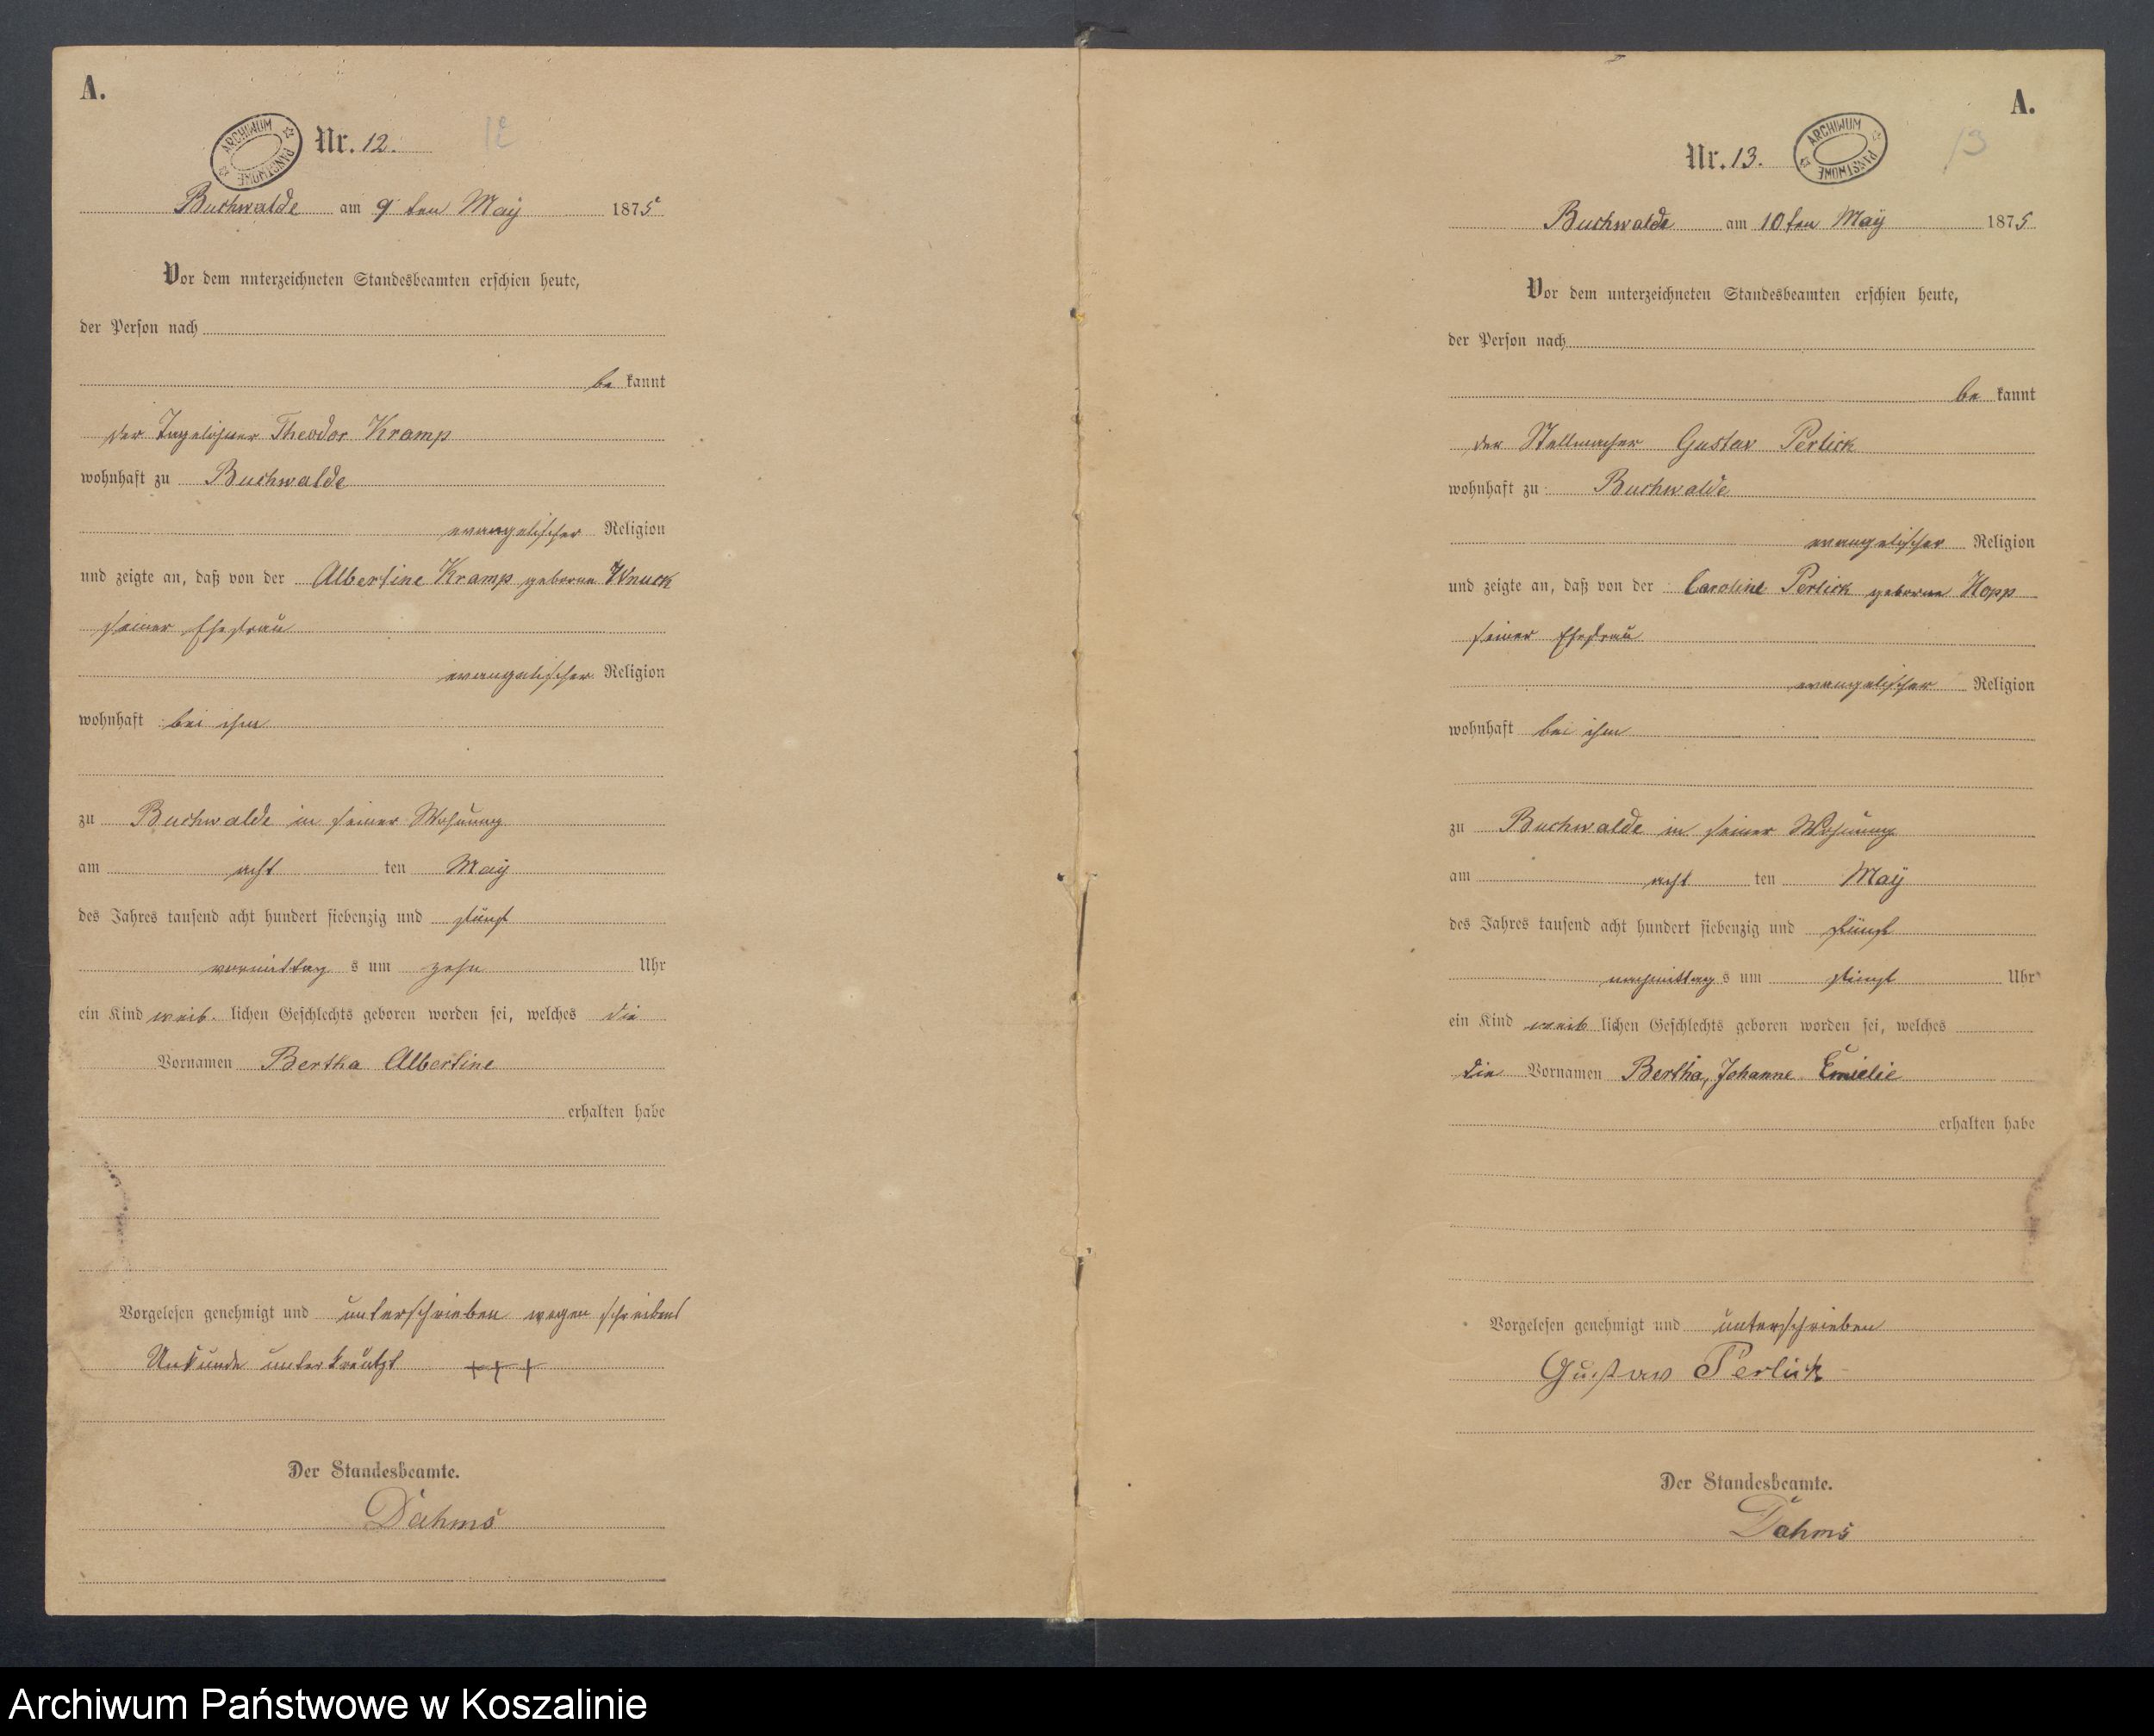 A.
ARCHIWUM PAŃSTWOWE
Nr. 12.
12
Buchwalde am 9ten Maÿ 1875
Vor dem unterzeichneten Standesbeamten erschien heute,
der Person nach
be kannt
der Tagelöhner Theodor Kramp
wohnhaft zu Buchwalde
evangelischer Religion
und zeigte an, daß von der Albertine Kramp geborne Wnuck
seiner Ehefrau
evangelischer Religion
wohnhaft bei ihm
zu Buchwalde in seiner Wohnung
am acht ten Maÿ
des Jahres tausend acht hundert siebenzig und fünf
vormittag s um zehn Uhr
ein Kind weib lichen Geschlechts geboren worden sei, welches die
Vornamen Bertha Albertine
erhalten habe
Vorgelesen genehmigt und unterschrieben wegen schreibens
Unkunde unterkreutzt +++
Der Standesbeamte.
Dahms
A.
ARCHIWUM PAŃSTWOWE
Nr. 13.
13
Buchwalde am 10ten Maÿ 1875
Vor dem unterzeichneten Standesbeamten erschien heute,
der Person nach
be kannt
der Stellmacher Gustav Perlick
wohnhaft zu Buchwalde
evangelischer Religion
und zeigte an, daß von der Caroline Perlick geborne Hopp
seiner Ehefrau
evangelischer Religion
wohnhaft bei ihm
zu Buchwalde in seiner Wohnung
am acht ten Maÿ
des Jahres tausend acht hundert siebenzig und fünf
nachmittag s um fünf Uhr
ein Kind weib lichen Geschlechts geboren worden sei, welches
die Vornamen Bertha, Johanne Emielie
erhalten habe
Vorgelesen genehmigt und unterschrieben
Gustaw Perlick
Der Standesbeamte.
Dahms
Archiwum Państwowe w Koszalinie